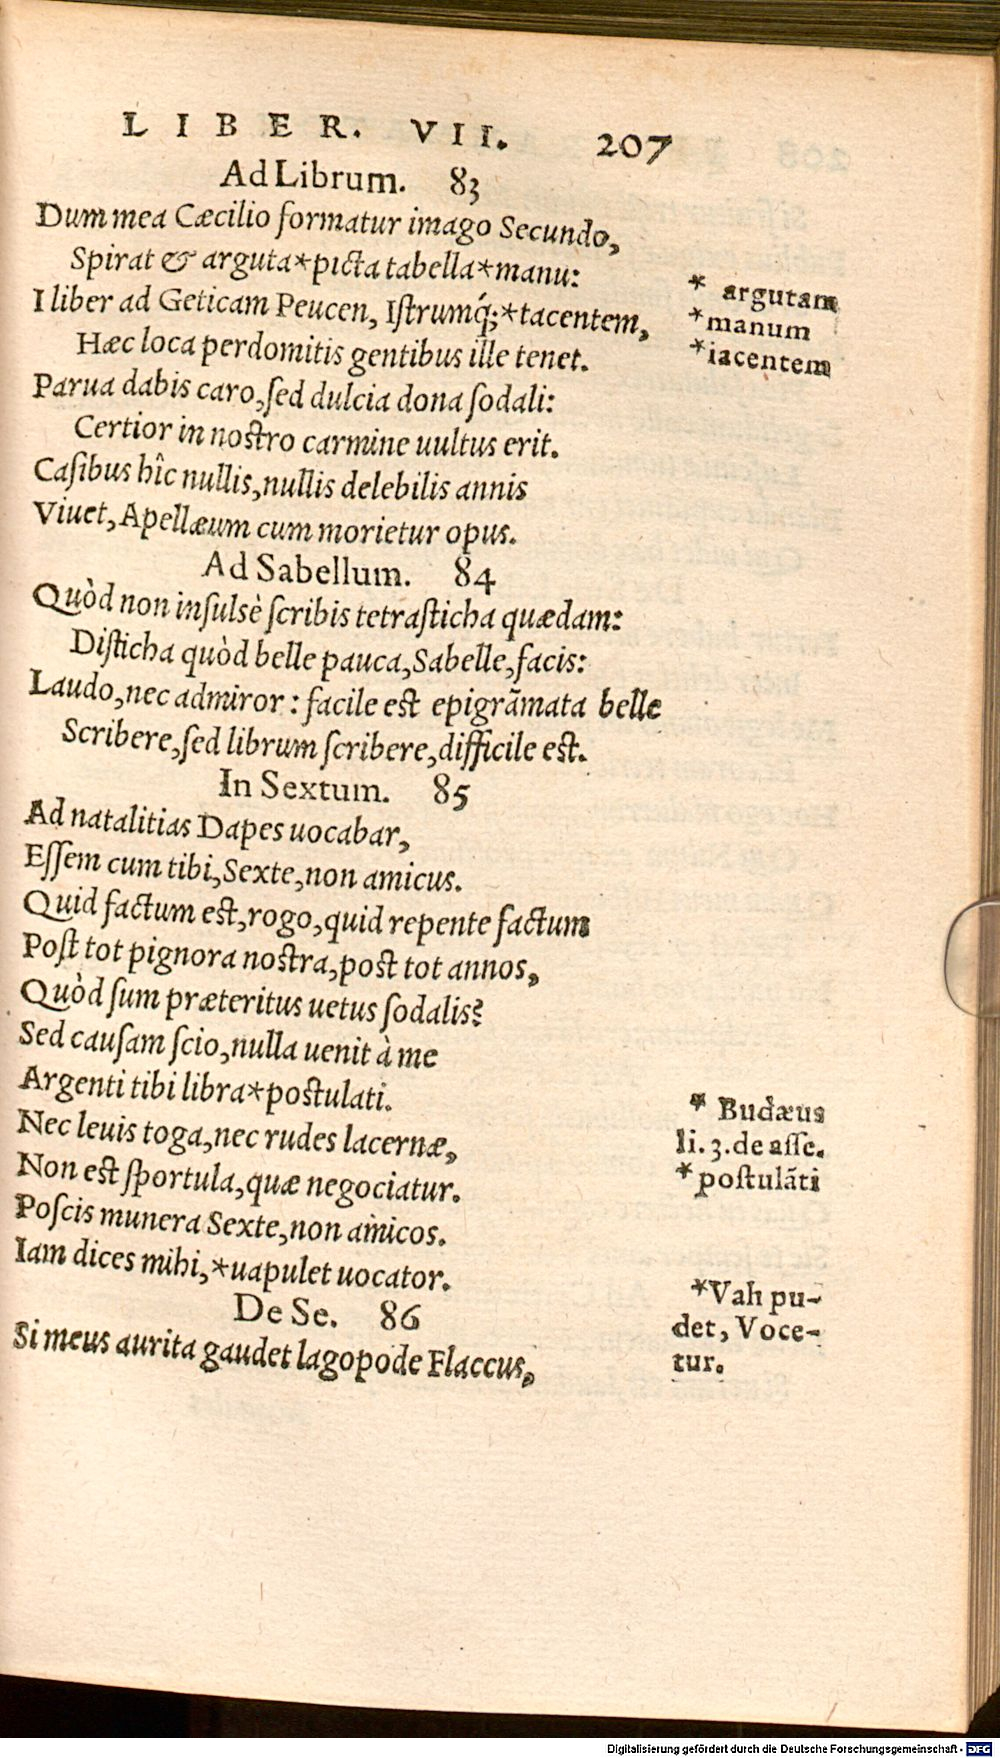 LIBER. VII. 207
Ad Librum. 83
Dum mea Cæcilio formatur imago Secundo,
Spirat & arguta*picta tabella*manu:
I liber ad Geticam Peucen, Iſtrumq́;*tacentem,
Hæc loca perdomitis gentibus ille tenet.
Parua dabis caro,ſed dulcia dona ſodali:
Certior in noſtro carmine uultus erit.
Caſibus hîc nullis,nullis delebilis annis
Viuet, Apellæum cum morietur opus.
* argutam
*manum
*iacentem
Ad Sabellum. 84
Quòd non inſulsè ſcribis tetraſticha quædam:
Diſticha quòd belle pauca,Sabelle,facis:
Laudo,nec admiror: facile eſt epigrãmata belle
Scribere,ſed librum ſcribere,difficile eſt.
In Sextum. 85
Ad natalitias Dapes uocabar,
Eſſem cum tibi,Sexte,non amicus.
Quid factum eſt,rogo,quid repente factum
Poſt tot pignora noſtra,poſt tot annos,
Quòd ſum præteritus uetus ſodalis?
Sed cauſam ſcio,nulla uenit à me
Argenti tibi libra*poſtulati.
Nec leuis toga,nec rudes lacernæ,
Non eſt ſportula,quæ negociatur.
Poſcis munera Sexte,non amicos.
Iam dices mihi,*uapulet uocator.
* Budæus
li. 3. de aſſe.
*poſtulãti
*Vah pu-
det, Voce-
tur.
De Se. 86
Si meus aurita gaudet lagopode Flaccus,
Digitalisierung gefördert durch die Deutsche Forschungsgemeinschaft - DFG